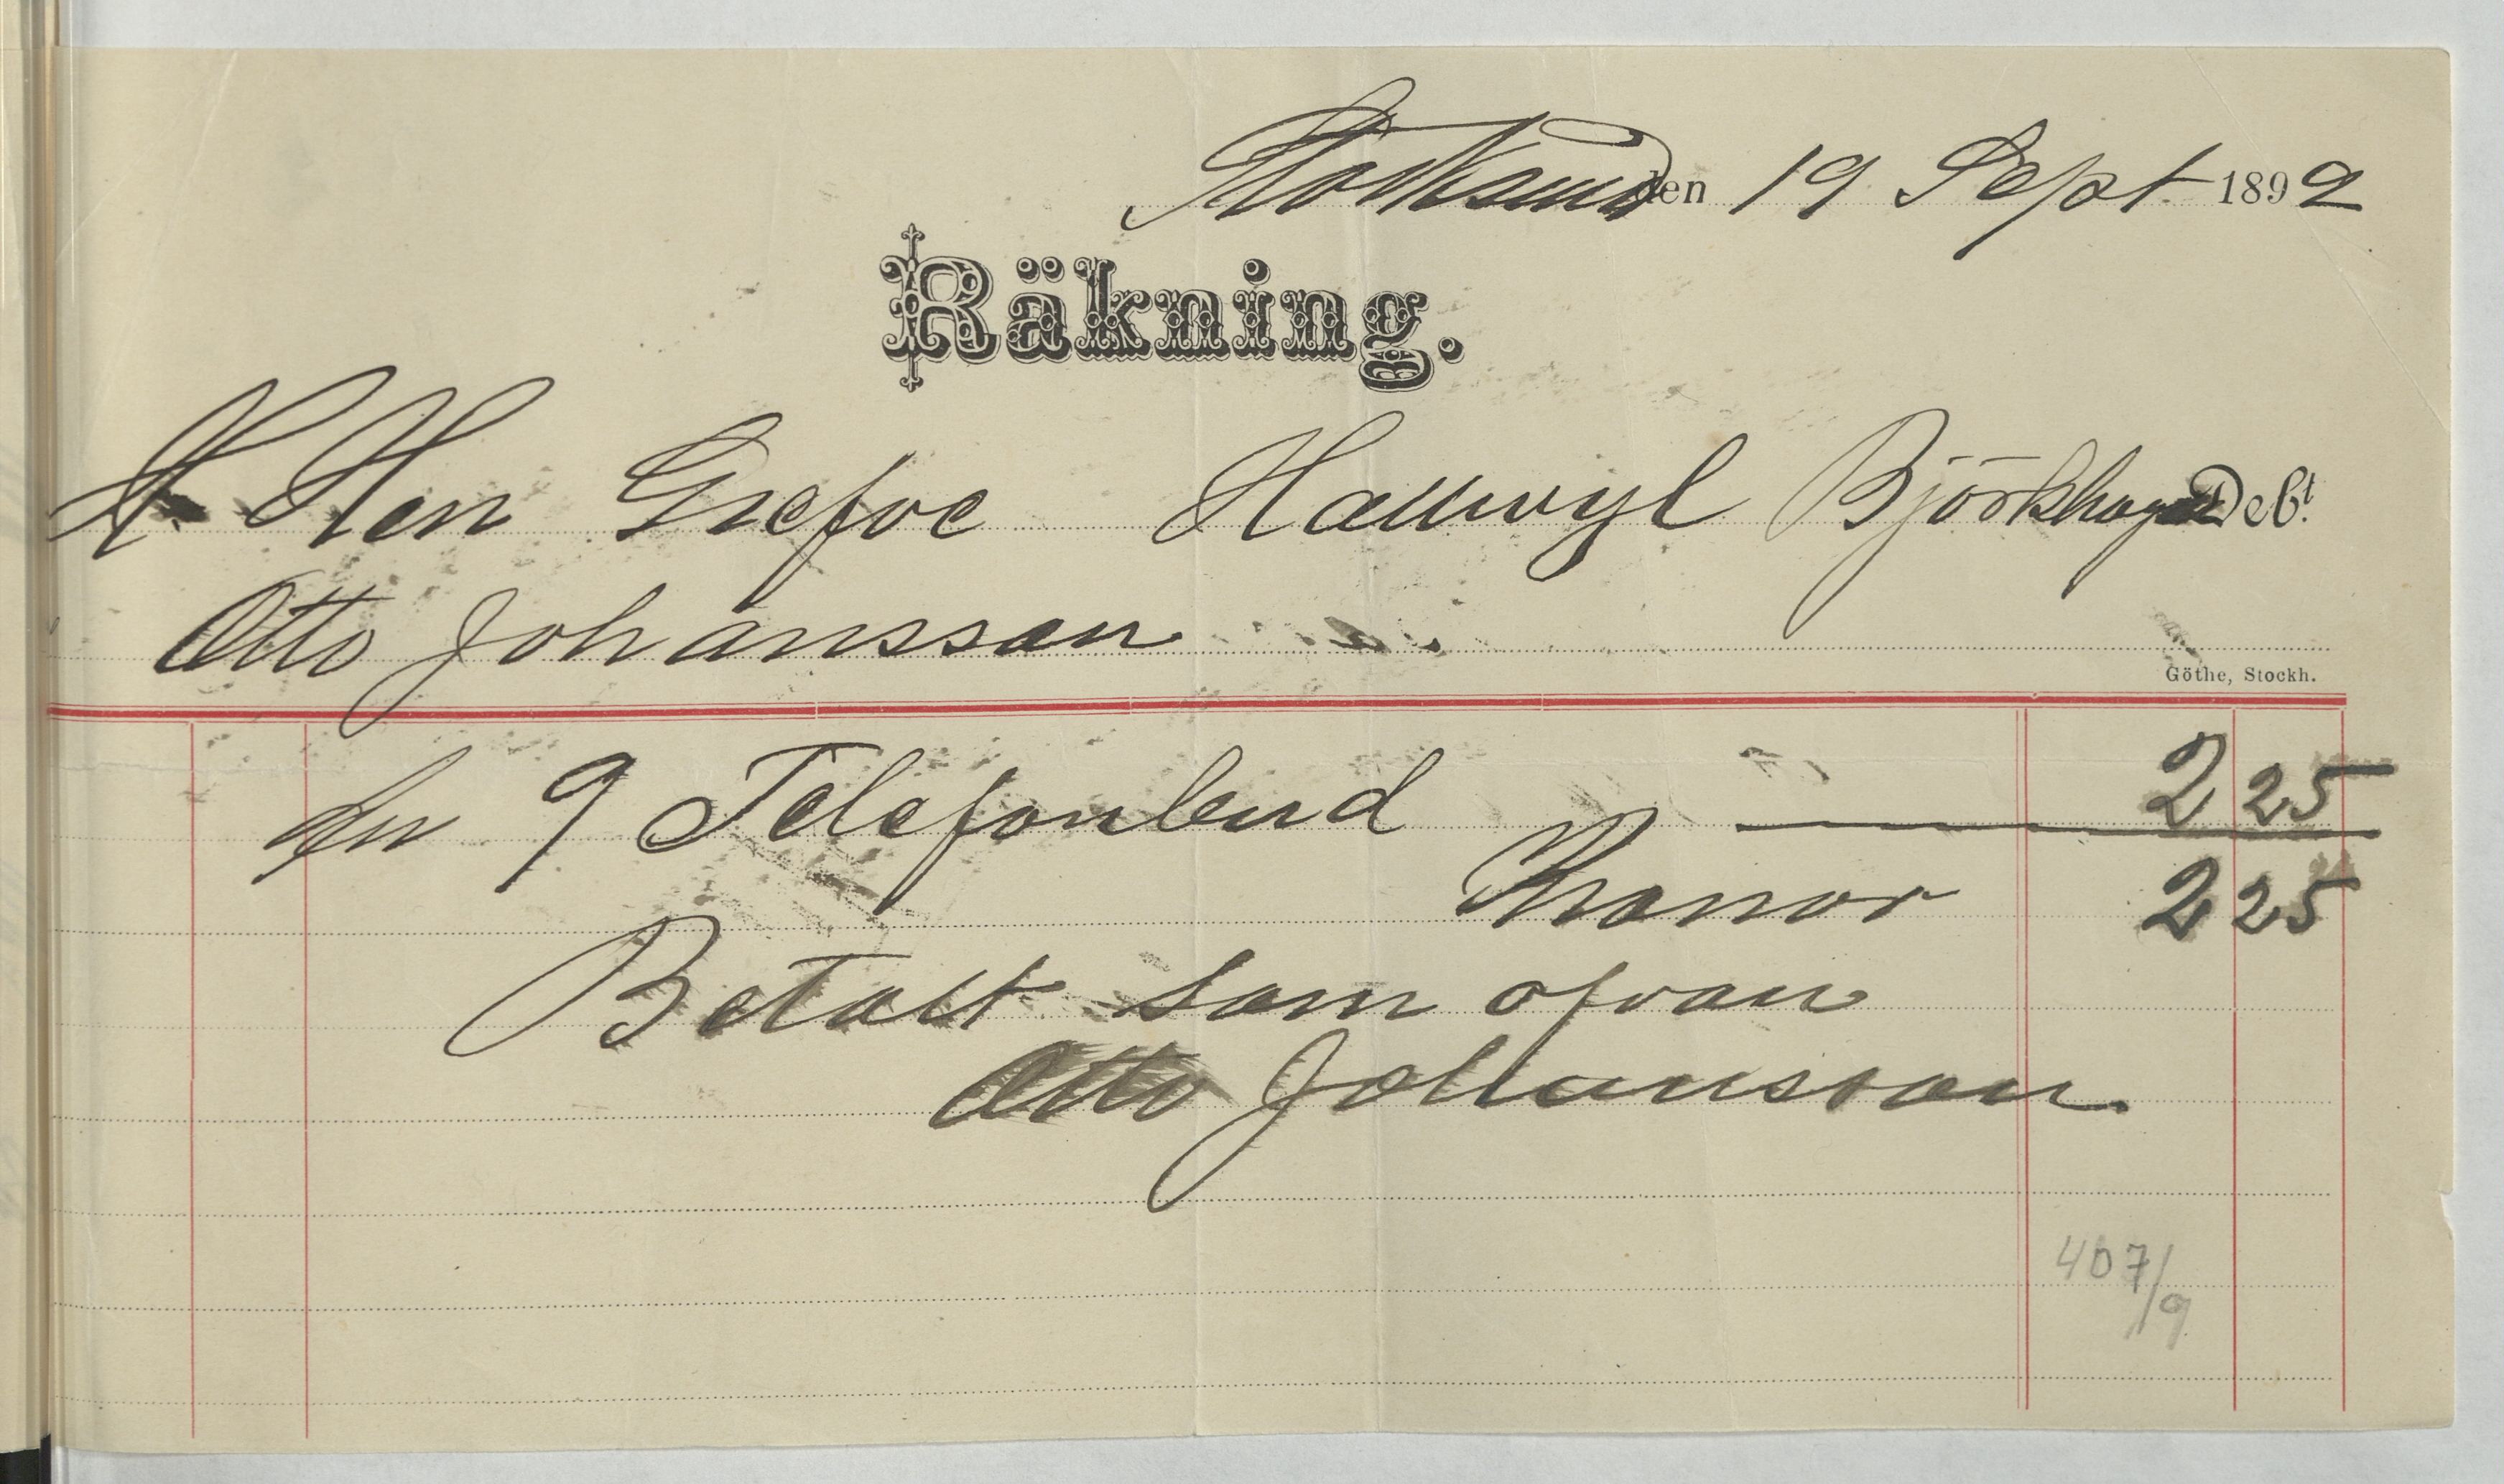 Stocksund den 19 Sept 1892
Räkning.
H Herr Grefve Hallwyl Björkhagen Debt.
Otto Johansson
Göthe, Stockh.
för 9 Telefonbud 2 25
Kronor 2 25
Betalt som ofvan
Otto Johansson.
407/9